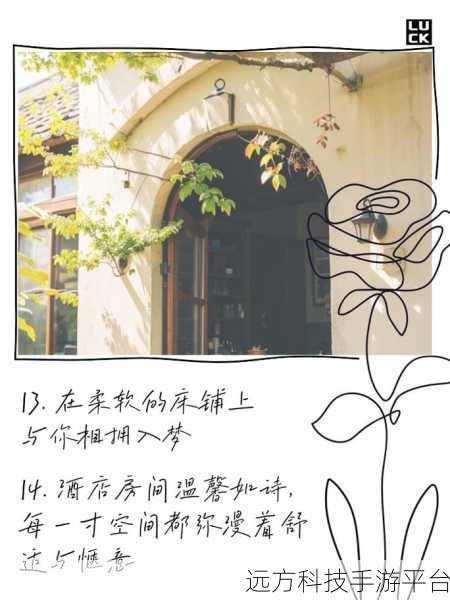 LU
CK
13. 在柔软的床铺上
与你相拥入梦
14. 酒店房间温馨如诗，
每一寸空间都弥漫着舒
适与惬意
远方科技手游平台